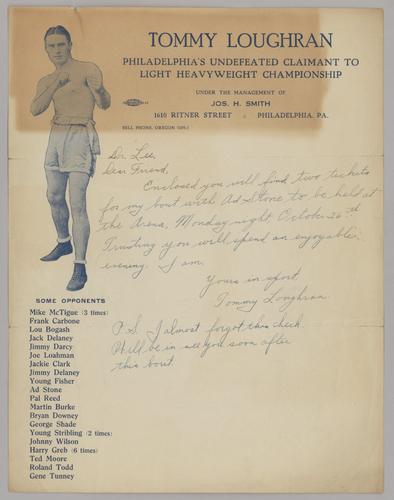 TOMMY LOUGHRAN
PHILADELPHIA'S UNDEFEATED CLAIMANT TO
LIGHT HEAVYWEIGHT CHAMPIONSHIP
UNDER THE MANAGEMENT OF
JOS. H. SMITH
1610 RITNER STREET : PHILADELPHIA, PA.
BELL PHONE, OREGON
Dr. Lee,
Dear Friend,
Enclosed you will find two tickets
for my bout with Ad Stone to be held at
the Arena, Monday night October 26th
Trusting you will spend an enjoyable
evening. I am.
Yours in sport
Tommy Loughran
P.S. I almost forgot this check.
Will be in see you soon after
this bout.
SOME OPPONENTS
Mike McTigue (3 times)
Frank Carbone
Lou Bogash
Jack Delaney
Jimmy Darcy
Joe Loahman
Jackie Clark
Jimmy Delaney
Young Fisher
Ad Stone
Pal Reed
Martin Burke
Bryan Downey
George Shade
Young Stribling (2 times)
Johnny Wilson
Harry Greb (6 times)
Ted Moore
Roland Todd
Gene Tunney